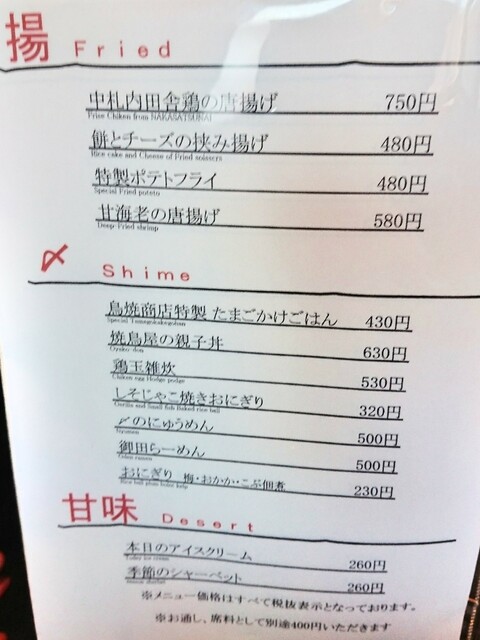 揚 Fried
中札内田舎鶏の唐揚げ 750円
Frise Chiken from NAKASATSUNAI
餅とチーズの挟み揚げ 480円
Rice cake and Cheese of Fried soissers
特製ポテトフライ 480円
Special Fried poteto
甘海老の唐揚げ 580円
Deep-Fried shrimp
〆 Shime
鳥焼商店特製 たまごかけごはん 430円
Special Tamagokakegohan
焼鳥屋の親子丼 630円
Oyako-don
鶏玉雑炊 530円
Chiken egg Hodge podge
しそじゃこ焼きおにぎり 320円
and Small fish Baked rice ball
〆のにゅうめん 500円
Nyumen
御田らーめん 500円
Oden ramen
おにぎり 梅・おかか・こぶ佃煮 230円
Rice ball
甘味 Desert
本日のアイスクリーム 260円
Today ice cream
季節のシャーベット 260円
※メニュー価格はすべて税抜表示となっております。
※お通し、席料として別途400円いただきます